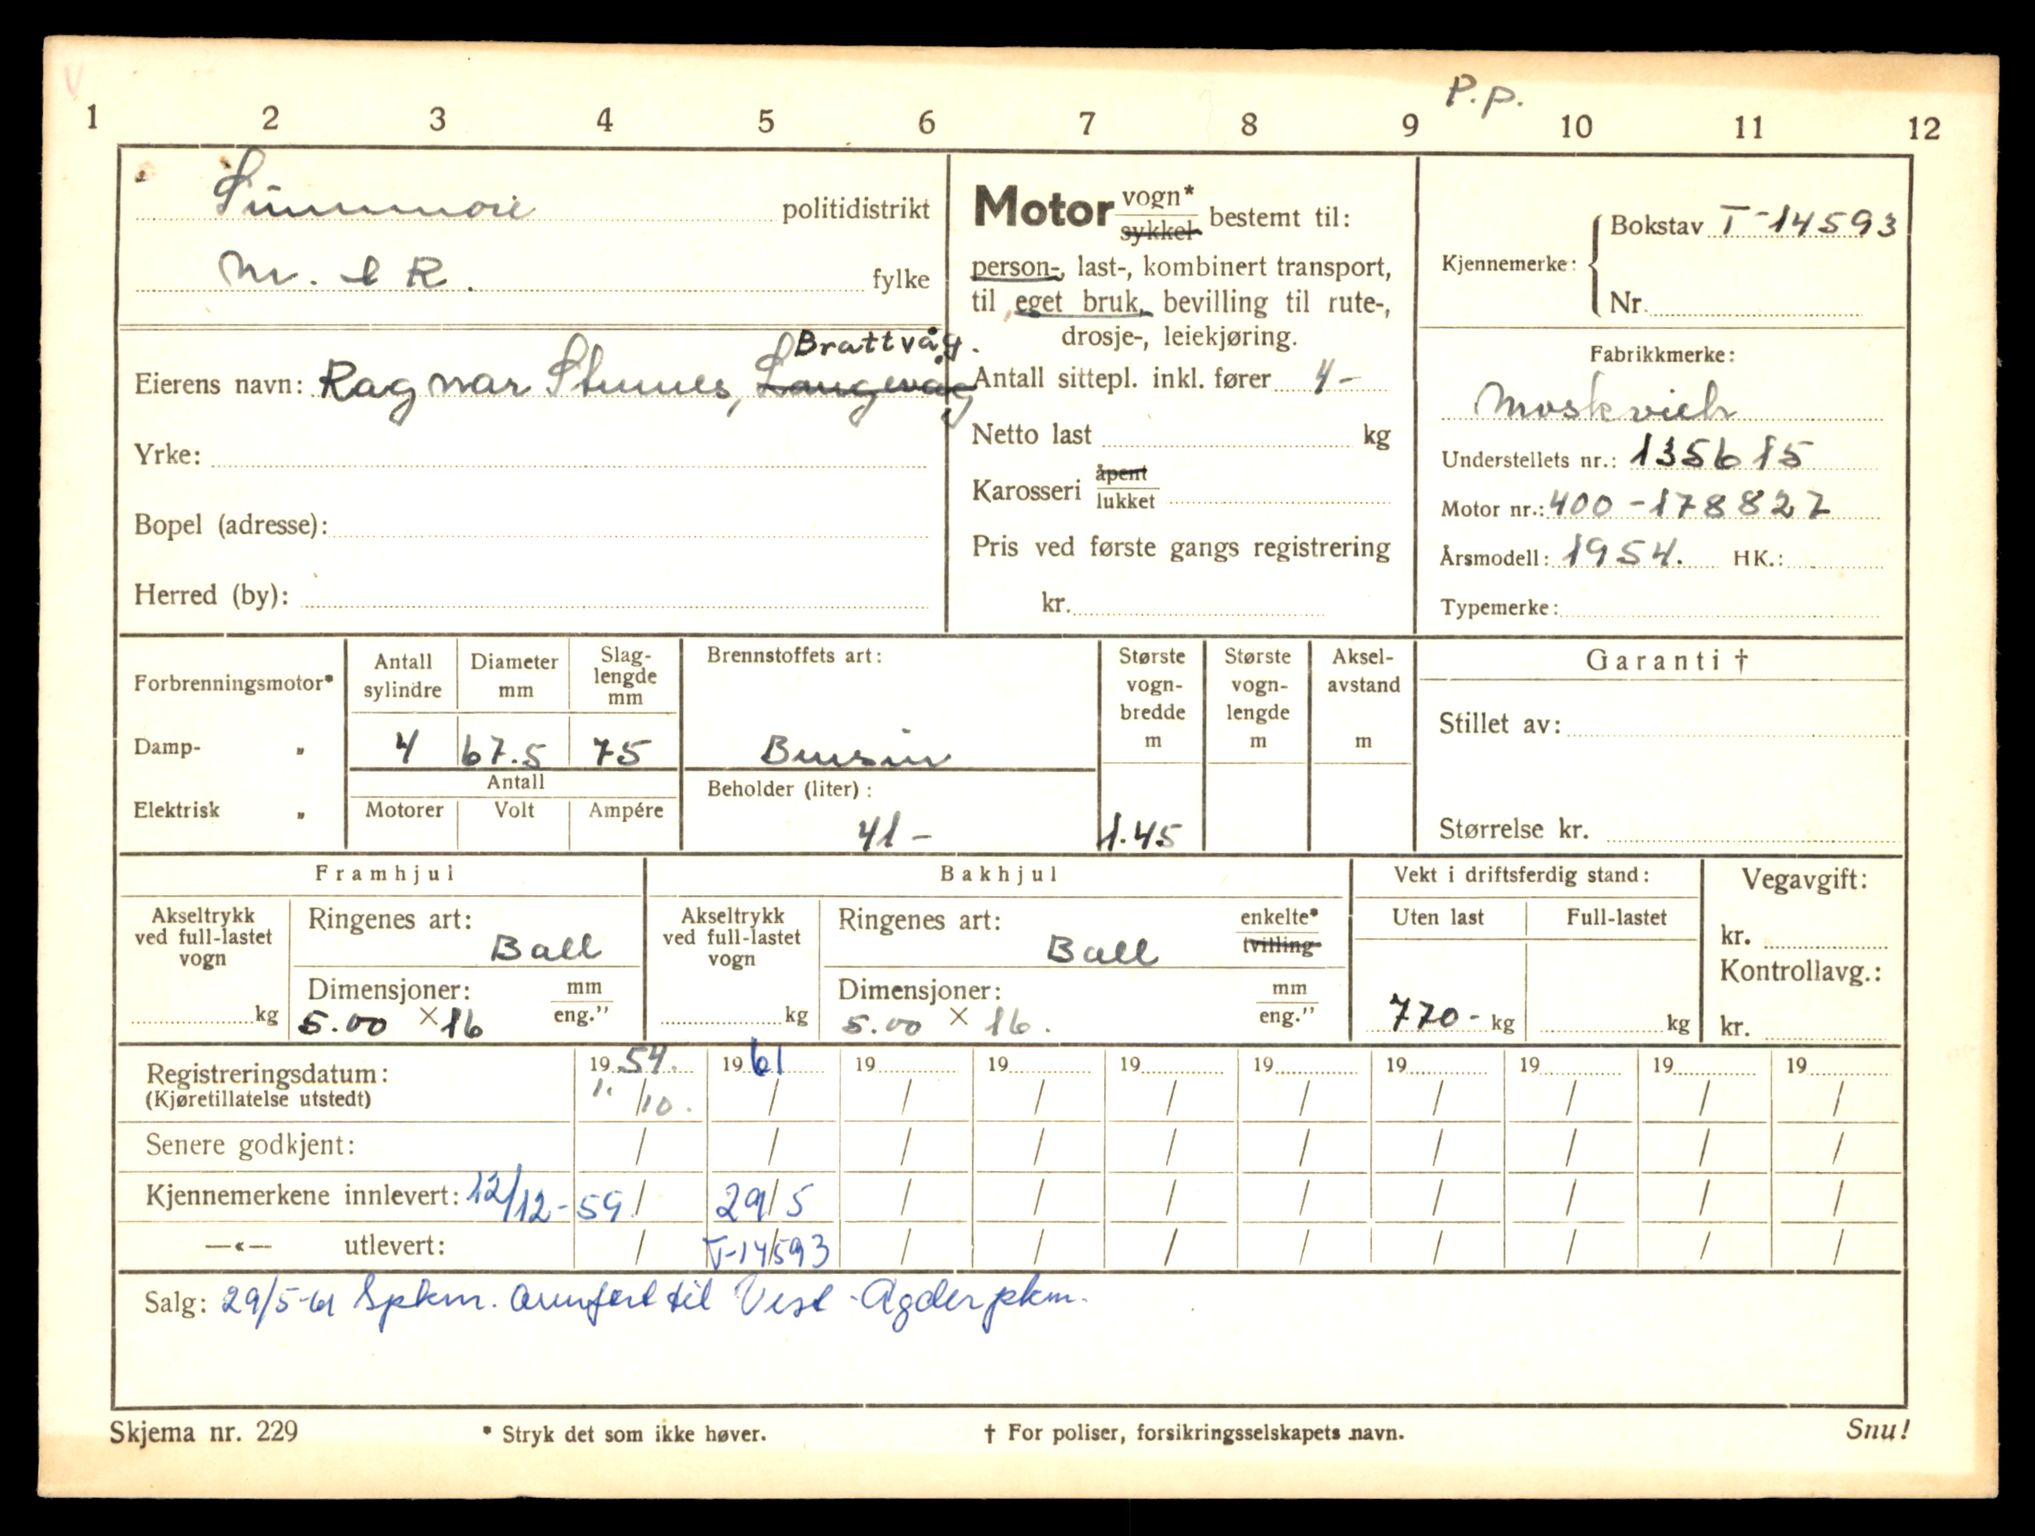 P.p.
1 2 3 4 5 6 7 8 9 10 11 12
Sunnmøre politidistrikt
M. & R. fylke
Brattvåg.
Eierens navn: Ragnar Stunes, Langevåg
Yrke:
Bopel (adresse):
Herred (by):
Motor vogn* sykkel bestemt til:
person-, last-, kombinert transport,
til eget bruk, bevilling til rute-,
drosje-, leiekjøring.
Antall sittepl. inkl. fører 4-
Netto last kg
Karosseri åpent lukket
Pris ved første gangs registrering
kr.
Kjennemerke: Bokstav T-14593
Nr.
Fabrikkmerke:
Moskvich
Understellets nr.: 135615
Motor nr.: 400-178827
Årsmodell: 1954. HK.:
Typemerke:
Forbrenningsmotor*
Damp- „
Elektrisk „
Antall sylindre
Diameter mm
Slag-
lengde
mm
4 67.5 75
Antall
Motorer Volt Ampére
Brennstoffets art:
Bensin
Beholder (liter):
41-
Største
vogn-
bredde
m
1.45
Største
vogn-
lengde
m
Aksel-
avstand
m
Garanti †
Stillet av:
Størrelse kr.
Framhjul
Akseltrykk
ved full-lastet
vogn
kg
Ringenes art:
Ball
Dimensjoner: mm eng."
5.00 × 16
Bakhjul
Akseltrykk
ved full-lastet
vogn
kg
Ringenes art: enkelte* tvilling
Ball
Dimensjoner: mm eng."
5.00 × 16.
Vekt i driftsferdig stand:
Uten last Full-lastet
770- kg kg
Vegavgift:
kr.
Kontrollavg.:
kr.
Registreringsdatum: 19 54. 19 61 19 19 19 19 19 19 19 19
(Kjøretillatelse utstedt) 1. / 10. / / / / / / / / /
Senere godkjent: / / / / / / / / / /
Kjennemerkene innlevert: 12/12-59 / 29/5 / / / / / / / /
—«— utlevert: / T-14593 / / / / / / / /
Salg: 29/5-61 Spkm. overført til Vest-Agder pkm.
Skjema nr. 229 * Stryk det som ikke høver. † For poliser, forsikringsselskapets navn. Snu!